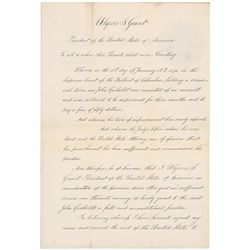 Ulysses S. Grant
President of the United States of America
To all to whom these Presents shall come, Greeting
Whereas on the 4th day of January A.D. 187 in the
Supreme Court of the District of Columbia, holding a criminal
term, one John was convicted of an assault
and was sentenced to be imprisoned for three months and to
pay a fine of fifty dollars.
And whereas his term of imprisonment has nearly expired
And whereas the Judge before whom he was
and the United States Attorney are of opinion that
his punishment has been sufficient and recommend his
pardon
Now therefore, be it known that I Ulysses S.
Grant President of the United States of America, in
consideration of the premises, divers other good and sufficient
reasons me thereunto moving, do hereby grant to the said
John a full and unconditional pardon.
In testimony whereof I have hereunto signed my
name and caused the seal of the United States to